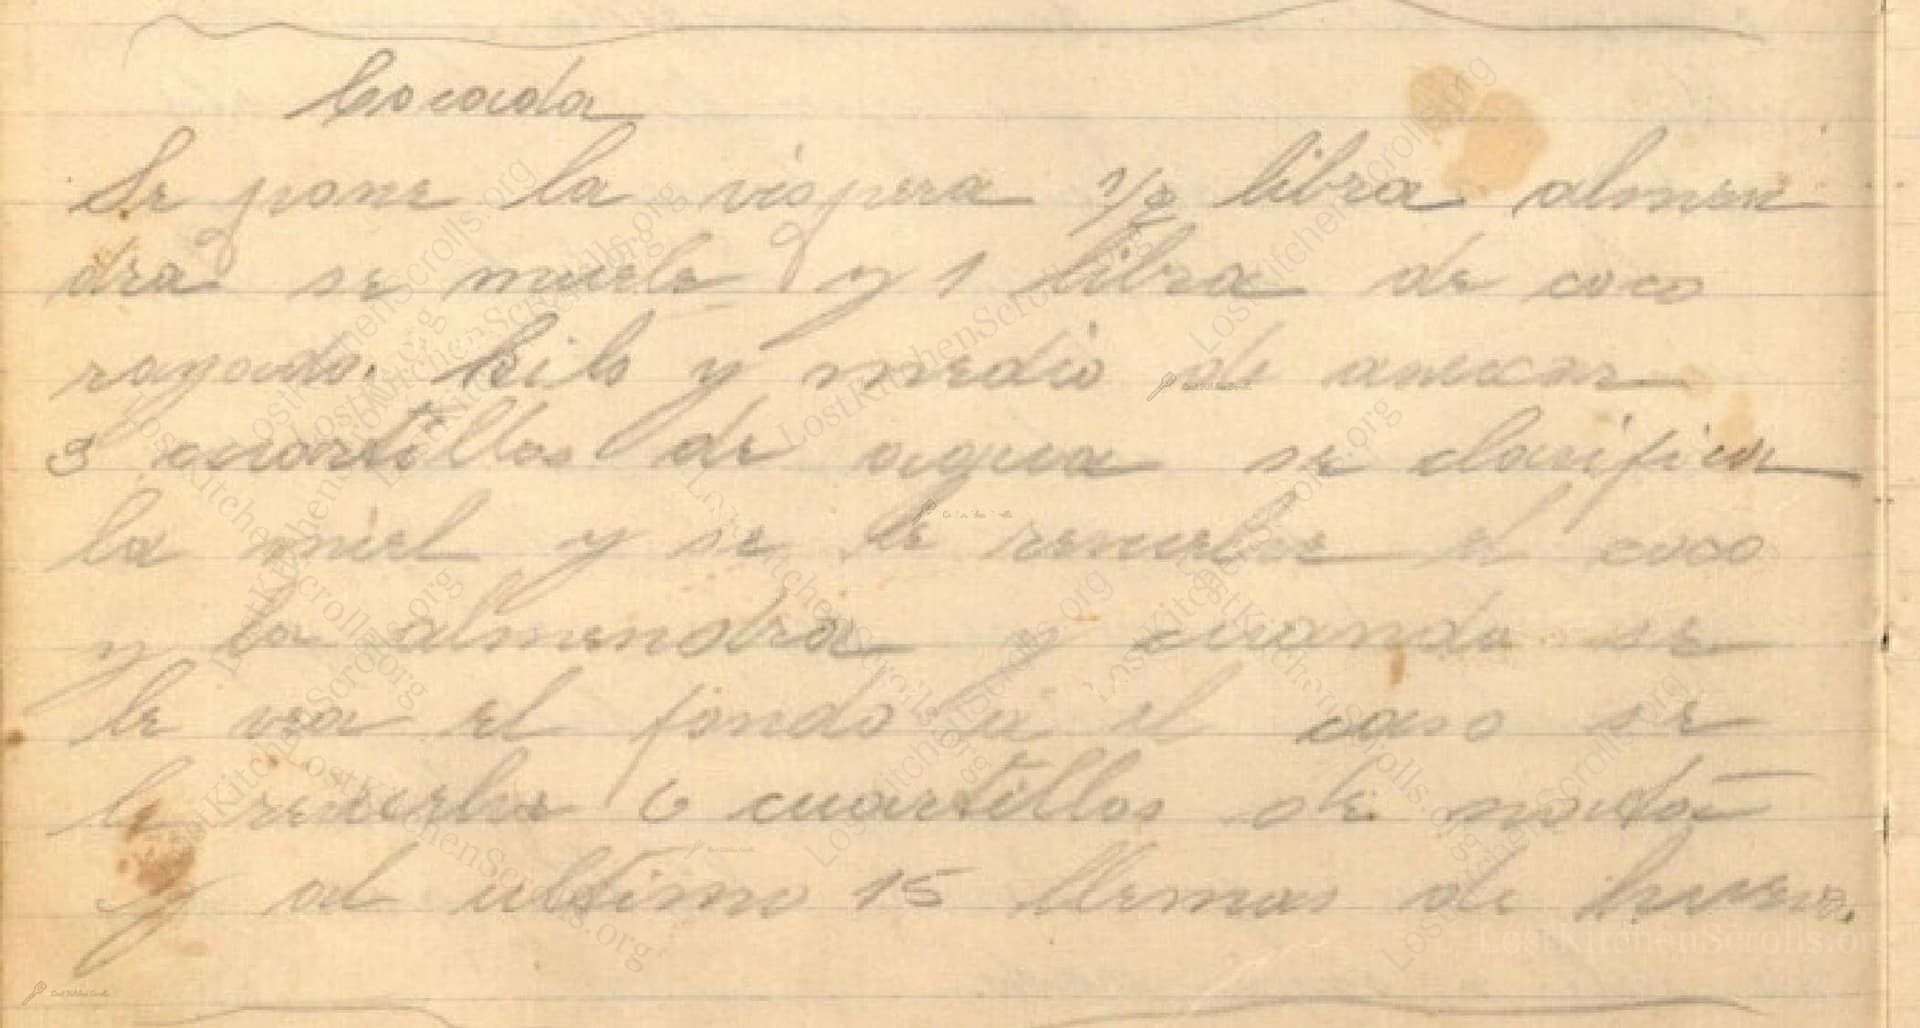 Cocada
Se pone la vispera 1/2 libra almen
dra se muele y 1 libra de coco
rayado. Kilo y medio de asucar
3 cuartillos de agua se clarifica
la miel y se le revuelve el coco
y la almendra y cuando se
le vea el fondo a el caso se
le revuelve 6 cuartillos de nata
y al ultimo 15 llemas de huevo.
LostKitchenScrolls.org